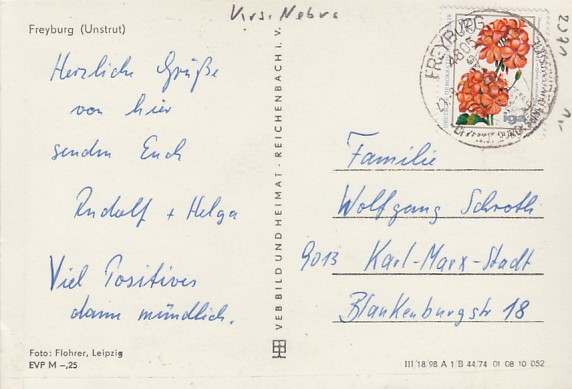 Krs. Nebra
Freyburg (Unstrut)
Herzliche Grüße
von hier
senden Euch
Rudolf + Helga
Viel Positives
dann mündlich.
Foto: Flohrer, Leipzig
EVP M –,25
VEB BILD UND HEIMAT · REICHENBACH i. V.
FREYBURG
4805
iga
Familie
Wolfgang Schroth
9013 Karl-Marx-Stadt
Blankenburgstr 18
III/18/98 A 1 B 44/74 01 08 10 052